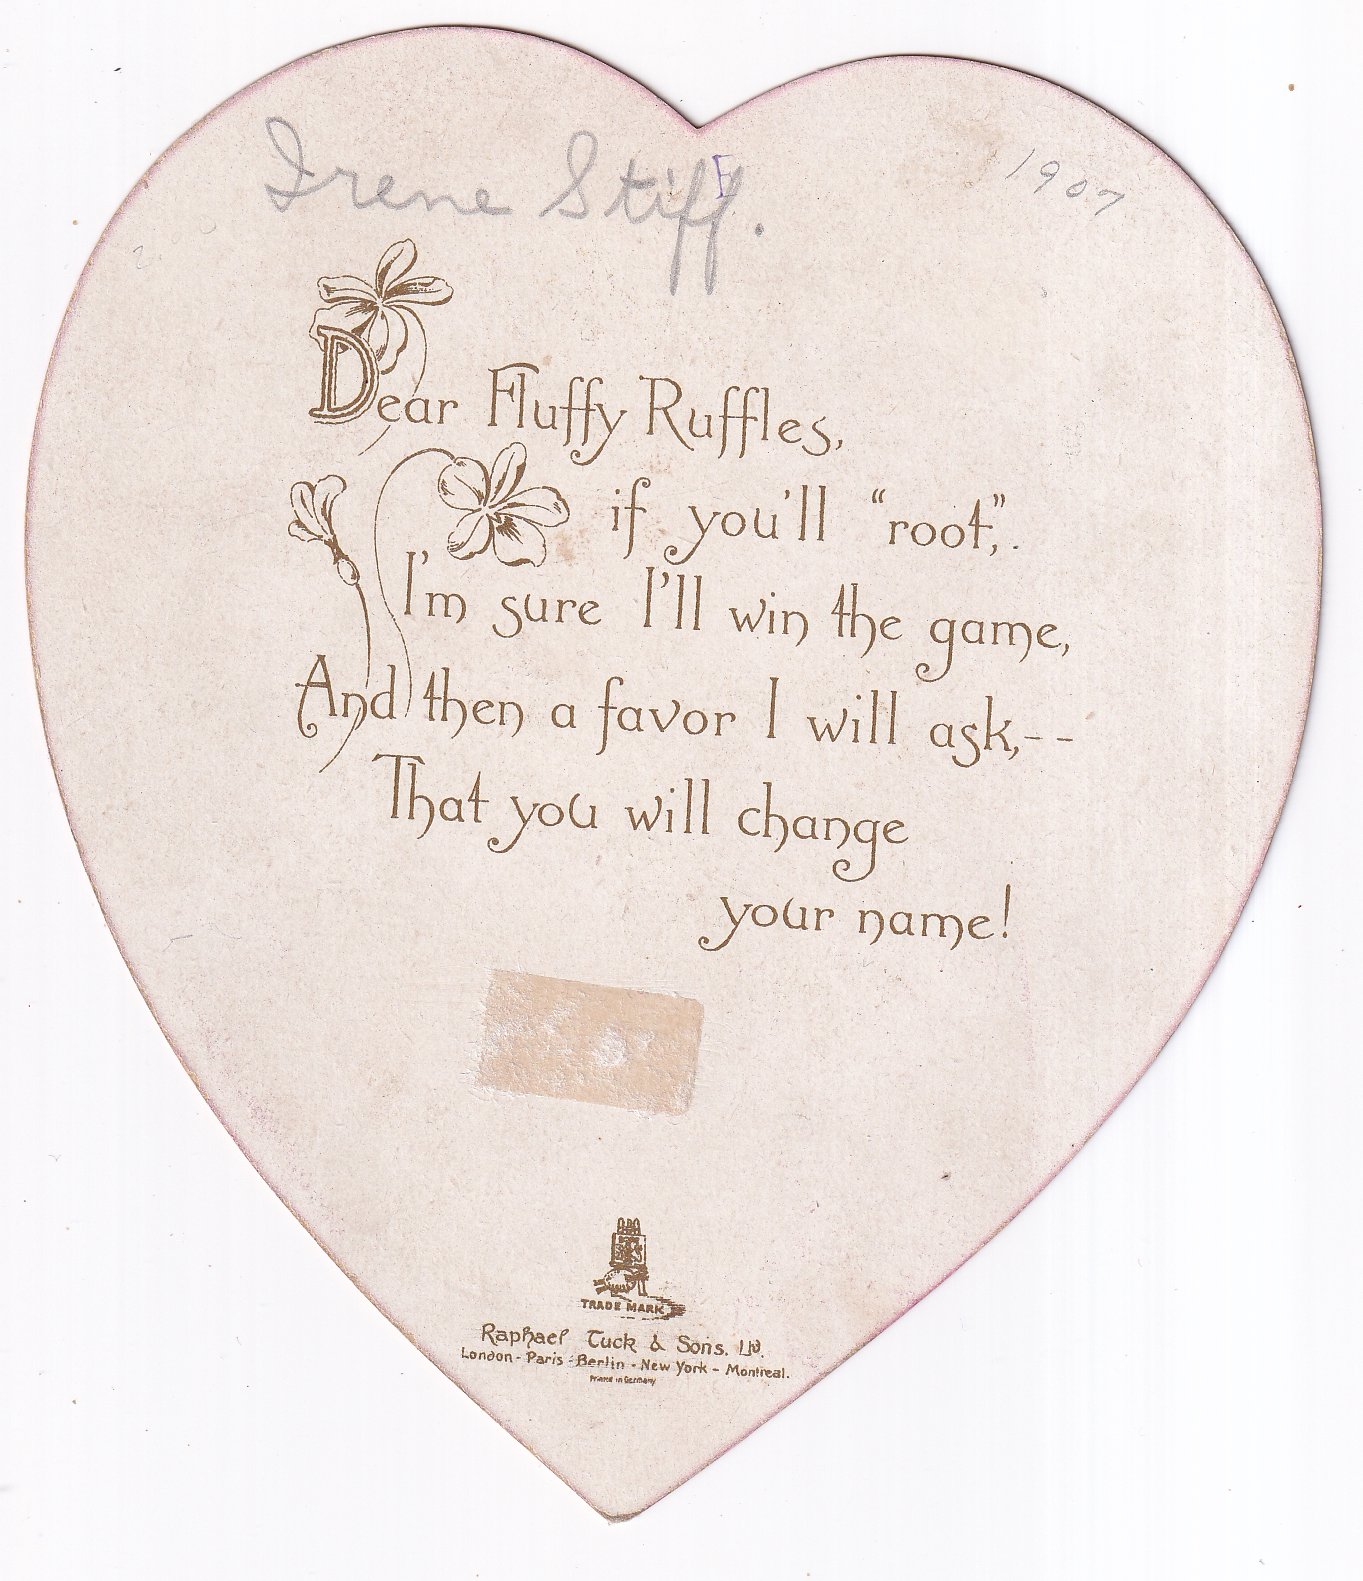 Irene Stiff.
E
1907
Dear Fluffy Ruffles,
if you'll "root",.
I'm sure I'll win the game,
And then a favor I will ask,--
That you will change
your name!
TRADE MARK
Raphael Tuck & Sons. Ltd.
London - Paris - Berlin - New York - Montreal.
Printed in Germany